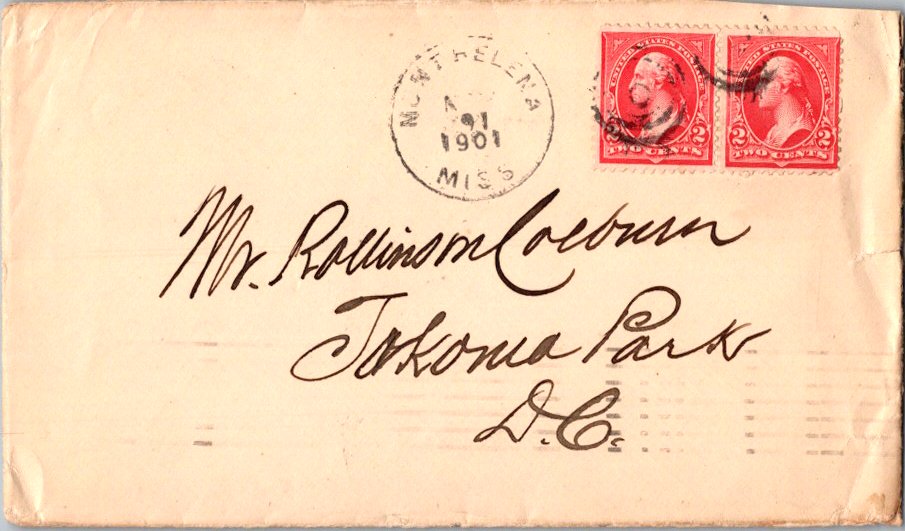 MONT HELENA
1901
MISS
UNITED STATES POSTAGE
2 2
TWO CENTS
UNITED STATES POSTAGE
2 2
TWO CENTS
Mr. Rollinson Colburn
Takoma Park
D.C.